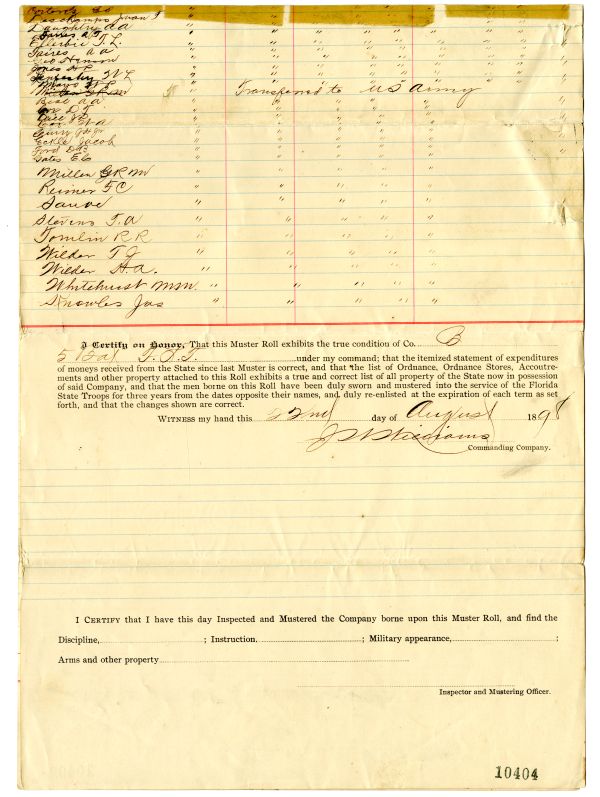 Deschamps Juan F
Daughtry A A
Faires A A
Transferred to US Army
Eckle Jacob
Ford D
Gates E C
Miller G R M
Reimer F C
Sauve
Stevens T. A
Tomlin R R
Wilder T J
Wilder H. A.
Whitehurst M M
Knowles Jas
I Certify on Honor, That this Muster Roll exhibits the true condition of Co. B
5 Bat F. S. T. under my command; that the itemized statement of expenditures
of moneys received from the State since last Muster is correct, and that the list of Ordnance, Ordnance Stores, Accoutre-
ments and other property attached to this Roll exhibits a true and correct list of all property of the State now in possession
of said Company, and that the men borne on this Roll have been duly sworn and mustered into the service of the Florida
State Troops for three years from the dates opposite their names, and duly re-enlisted at the expiration of each term as set
forth, and that the changes shown are correct.
WITNESS my hand this 22nd day of August 1898
J W Williams
Commanding Company.
I CERTIFY that I have this day Inspected and Mustered the Company borne upon this Muster Roll, and find the
Discipline, ; Instruction, ; Military appearance, ;
Arms and other property
Inspector and Mustering Officer.
10404